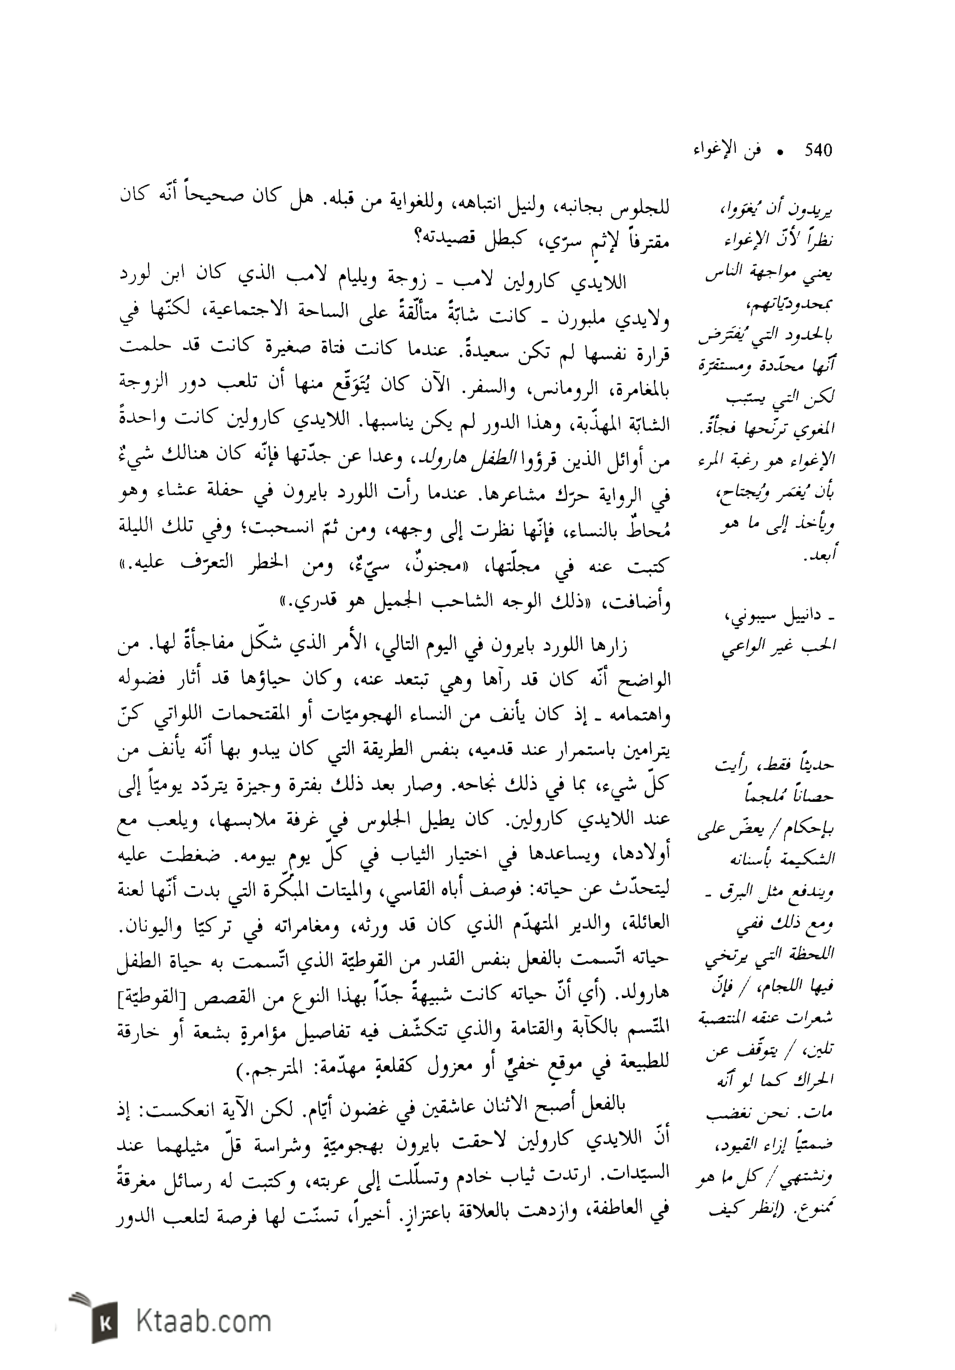 540 • فن الإغواء
للجلوس بجانبه، ولنيل انتباهه، وللغواية من قبله. هل كان صحيحاً أنّه كان
مقترفاً لإثمٍ سرّي، كبطل قصيدته؟
اللايدي كارولين لامب ـ زوجة ويليام لامب الذي كان ابن لورد
ولايدي ملبورن ـ كانت شابّةً متألّقةً على الساحة الاجتماعية، لكنّها في
قرارة نفسها لم تكن سعيدةً. عندما كانت فتاة صغيرة كانت قد حلمت
بالمغامرة، الرومانس، والسفر. الآن كان يُتَوَقّع منها أن تلعب دور الزوجة
الشابّة المهذّبة، وهذا الدور لم يكن يناسبها. اللايدي كارولين كانت واحدةً
من أوائل الذين قرؤوا الطفل هارولد، وعدا عن جدّتها فإنّه كان هنالك شيءٌ
في الرواية حرّك مشاعرها. عندما رأت اللورد بايرون في حفلة عشاء وهو
مُحاطٌ بالنساء، فإنّها نظرت إلى وجهه، ومن ثمّ انسحبت؛ وفي تلك الليلة
كتبت عنه في مجلّتها، «مجنونٌ، سيءٌ، ومن الخطر التعرّف عليه.»
وأضافت، «ذلك الوجه الشاحب الجميل هو قدري.»
زارها اللورد بايرون في اليوم التالي، الأمر الذي شكّل مفاجأةً لها. من
الواضح أنّه كان قد رآها وهي تبتعد عنه، وكان حياؤها قد أثار فضوله
واهتمامه ـ إذ كان يأنف من النساء الهجوميّات أو المقتحمات اللواتي كنّ
يترامين باستمرار عند قدميه، بنفس الطريقة التي كان يبدو بها أنّه يأنف من
كلّ شيء، بما في ذلك نجاحه. وصار بعد ذلك بفترة وجيزة يتردّد يوميّاً إلى
عند اللايدي كارولين. كان يطيل الجلوس في غرفة ملابسها، ويلعب مع
أولادها، ويساعدها في اختيار الثياب في كلّ يوم بيومه. ضغطت عليه
ليتحدّث عن حياته: فوصف أباه القاسي، والميتات المبكّرة التي بدت أنّها لعنة
العائلة، والدير المتهدّم الذي كان قد ورثه، ومغامراته في تركيّا واليونان.
حياته اتّسمت بالفعل بنفس القدر من القوطيّة الذي اتّسمت به حياة الطفل
هارولد. (أي أنّ حياته كانت شبيهةً جدّاً بهذا النوع من القصص [القوطيّة]
المتّسم بالكآبة والقتامة والذي تتكشّف فيه تفاصيل مؤامرةٍ بشعة أو خارقة
للطبيعة في موقعٍ خفيٍّ أو معزول كقلعةٍ مهدّمة: المترجم.)
بالفعل أصبح الاثنان عاشقين في غضون أيّام. لكن الآية انعكست: إذ
أنّ اللايدي كارولين لاحقت بايرون بهجوميّةٍ وشراسة قلّ مثيلهما عند
السيّدات. ارتدت ثياب خادم وتسلّلت إلى عربته، وكتبت له رسائل مغرقةً
في العاطفة، وازدهت بالعلاقة باعتزازٍ. أخيراً، تسنّت لها فرصة لتلعب الدور
يريدون أن يُغوَوا،
نظراً لأنّ الإغواء
يعني مواجهة الناس
بمحدوديّاتهم،
بالحدود التي يُفتَرض
أنّها محدّدة ومستقرّة
لكن التي يسبّب
المغوي ترنّحها فجأةً.
الإغواء هو رغبة المرء
بأن يُغمَر ويُجتاح،
ويأخذ إلى ما هو
أبعد.
ـ دانييل سيبوني،
الحب غير الواعي
حديثاً فقط، رأيت
حصاناً مُلجماً
بإحكام / يعضّ على
الشكيمة بأسنانه
ويندفع مثل البرق ـ
ومع ذلك ففي
اللحظة التي يرتخي
فيها اللجام، / فإنّ
شعرات عنقه المنتصبة
تلين، / يتوقّف عن
الحراك كما لو أنّه
مات. نحن نغضب
ضمنيّاً إزاء القيود،
ونشتهي / كل ما هو
ممنوع. (إنظر كيف
Ktaab.com